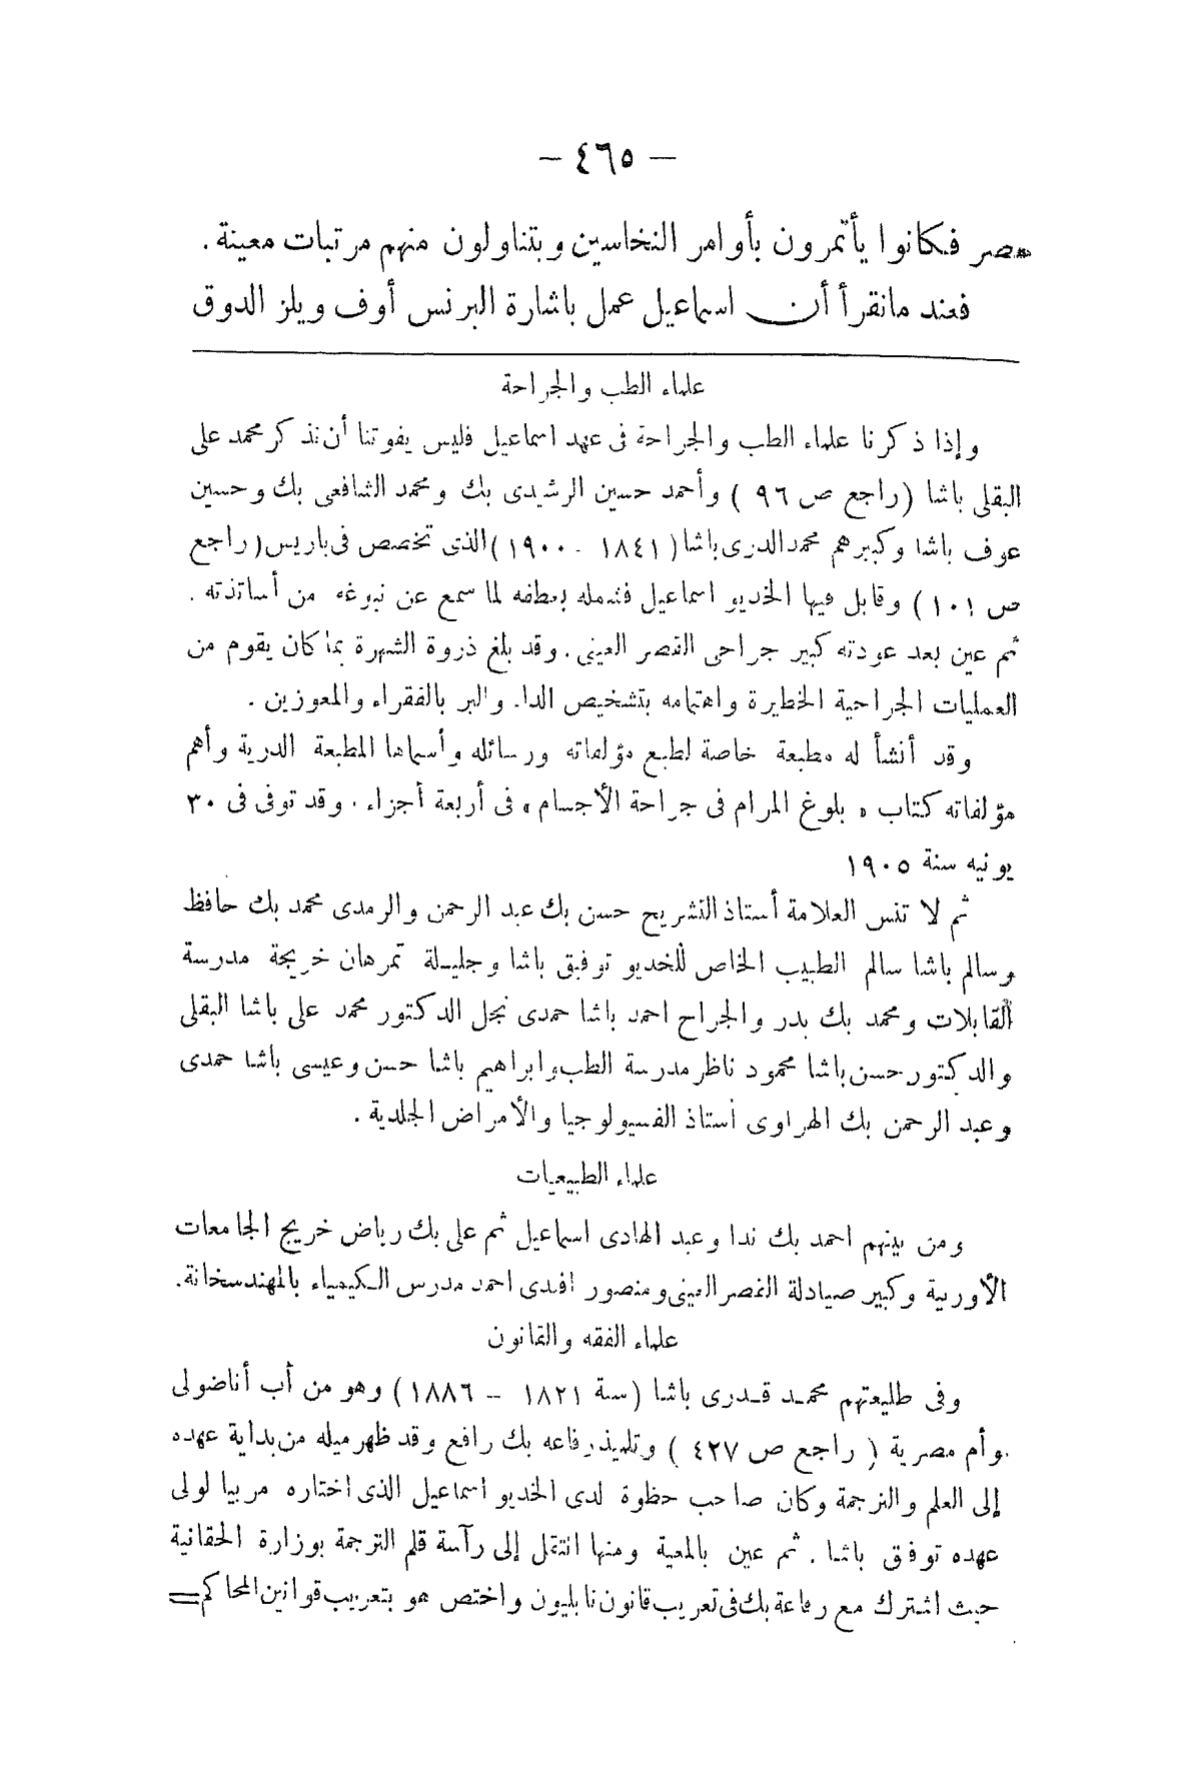 — ٤٦٥ —
مصر فكانوا يأتمرون بأوامر النخاسين ويتناولون منهم مرتبات معينة .
فعند مانقرأ أن اسماعيل عمل باشارة البرنس أوف ويلز الدوق
علماء الطب والجراحة
وإذا ذكرنا علماء الطب والجراحة فى عهد اسماعيل فليس يفوتنا أن نذكر محمد على
البقلى باشا (راجع ص ٩٦ ) وأحمد حسين الرشيدى بك ومحمد الشافعى بك وحسين
عوف باشا وكبيرهم محمد الدرى باشا ( ١٨٤١ - ١٩٠٠ ) الذى تخصص فى باريس (راجع
ص ١٠١ ) وقابل فيها الخديو اسماعيل فشمله بعطفه لما سمع عن نبوغه من أساتذته .
ثم عين بعد عودته كبير جراحى القصر العينى . وقد بلغ ذروة الشهرة بما كان يقوم من
العمليات الجراحية الخطيرة واهتمامه بتشخيص الداء والبر بالفقراء والمعوزين .
وقد أنشأ له مطبعة خاصة لطبع مؤلفاته ورسائله وأسماها المطبعة الدرية وأهم
مؤلفاته كتاب « بلوغ المرام فى جراحة الأجسام » فى أربعة أجزاء . وقد توفى فى ٣٠
يونيه سنة ١٩٠٥
ثم لا تنس العلامة أستاذ التشريح حسن بك عبد الرحمن والرمدى محمد بك حافظ
وسالم باشا سالم الطبيب الخاص للخديو توفيق باشا وجليلة تمرهان خريجة مدرسة
القابلات ومحمد بك بدر والجراح احمد باشا حمدى نجل الدكتور محمد على باشا البقلى
والدكتور حسن باشا محمود ناظر مدرسة الطب وابراهيم باشا حسن وعيسى باشا حمدى
وعبد الرحمن بك الهراوى أستاذ الفسيولوجيا والأمراض الجلدية .
علماء الطبيعيات
ومن بينهم احمد بك ندا وعبد الهادى اسماعيل ثم على بك رياض خريج الجامعات
الأوربية وكبير صيادلة القصر العينى ومنصور افندى احمد مدرس الكيمياء بالمهندسخانة .
علماء الفقه والقانون
وفى طليعتهم محمد قدرى باشا (سنة ١٨٢١ – ١٨٨٦ ) وهو من أب أناضولى
وأم مصرية ( راجع ص ٤٢٧ ) وتلميذ رفاعه بك رافع وقد ظهر ميله من بداية عهده
إلى العلم والترجمة وكان صاحب حظوة لدى الخديو اسماعيل الذى اختاره مربيا لولى
عهده توفق باشا . ثم عين بالمعية ومنها انتقل إلى رآسة قلم الترجمة بوزارة الحقانية
حيث اشترك مع رفاعة بك فى تعريب قانون نابليون واختص هو بتعريب قوانين المحاكم =